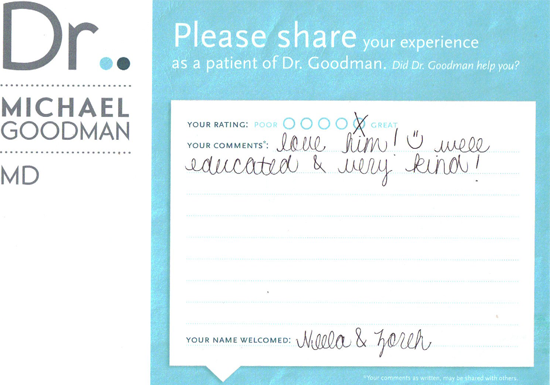 Dr..
MICHAEL
GOODMAN
MD
Please share your experience
as a patient of Dr. Goodman. Did Dr. Goodman help you?
YOUR RATING: POOR GREAT
YOUR COMMENTS*: love him! well
educated & very kind!
YOUR NAME WELCOMED: Neela & Zoreh
*Your comments as written, may be shared with others.